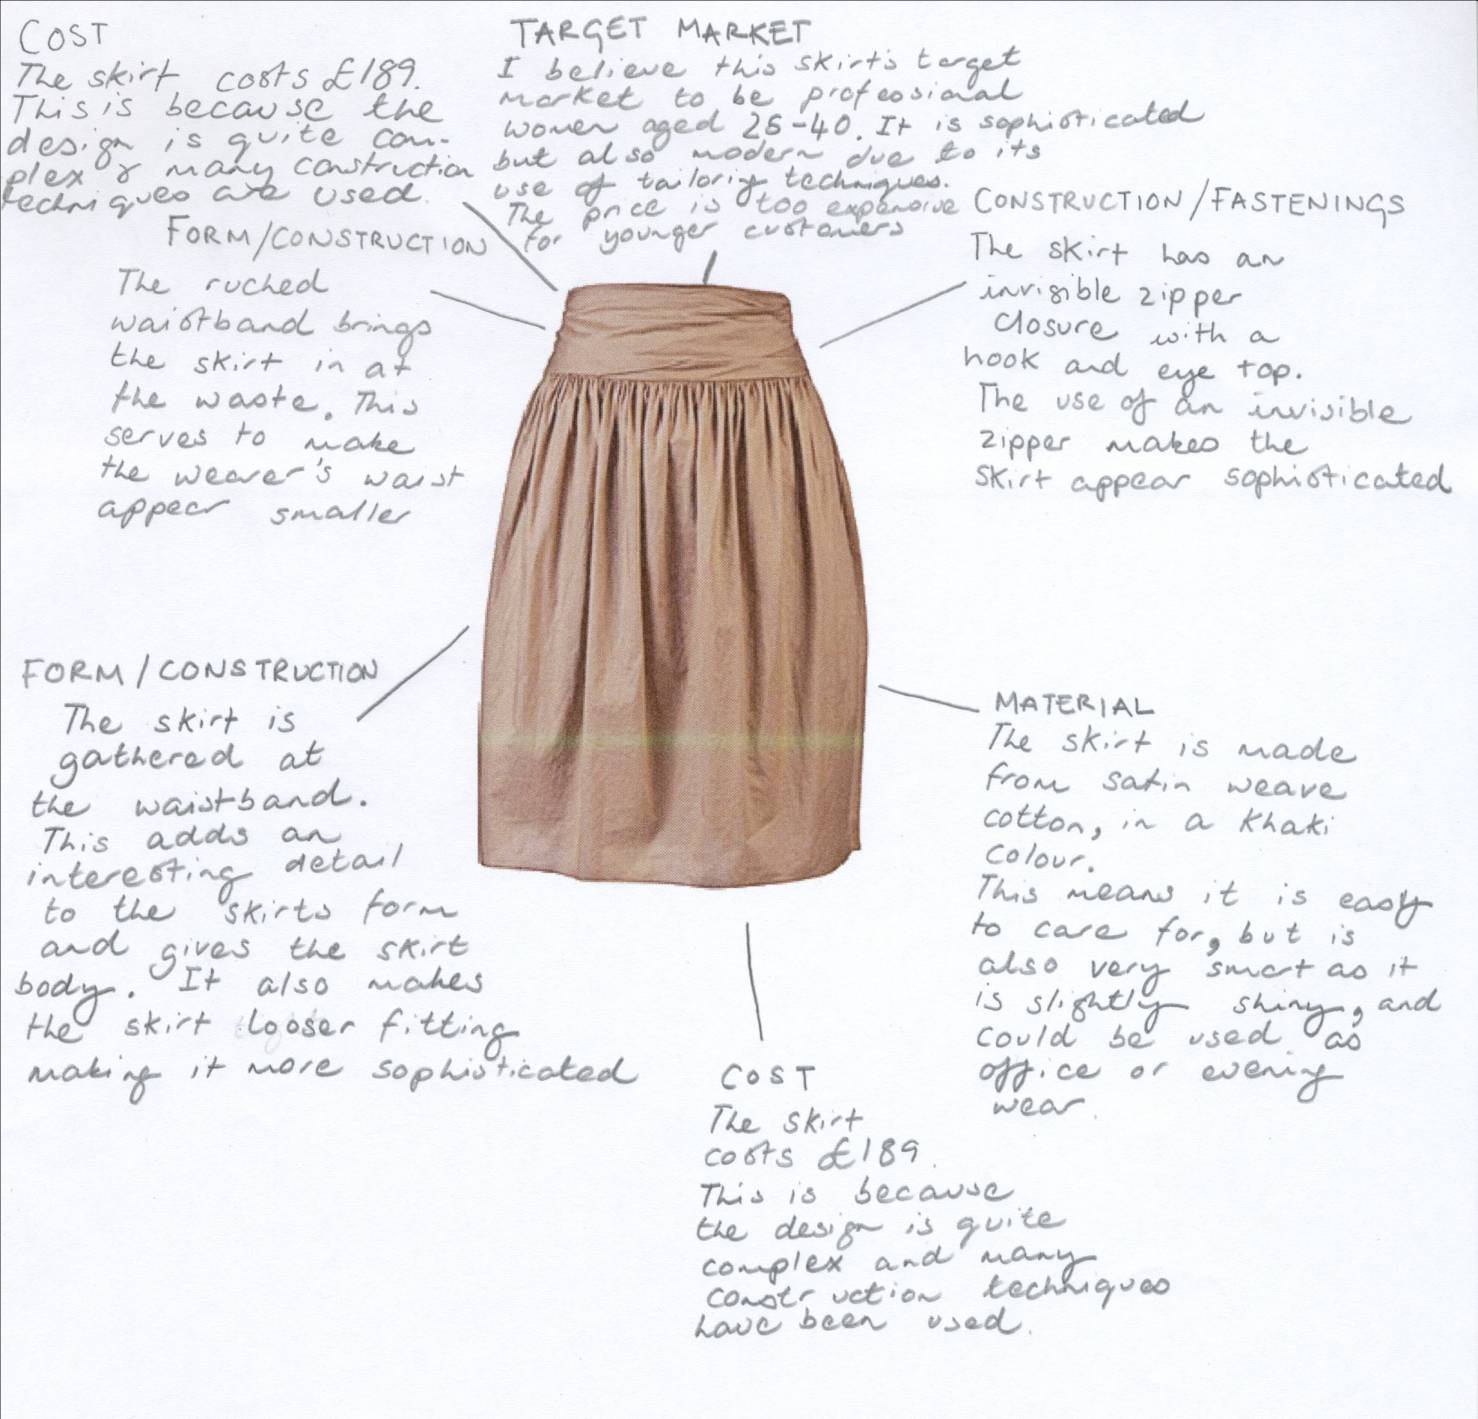 COST
The skirt costs £189.
This is because the
design is quite com-
plex & many construction
techniques are used.
TARGET MARKET
I believe this skirt's target
market to be professional
women aged 25-40. It is sophisticated
but also modern due to its
use of tailorig techniques.
The price is too expensive
for younger customers
FORM/CONSTRUCTION
The ruched
waistband brings
the skirt in at
the waste. This
serves to make
the wearer's waist
appear smaller
CONSTRUCTION/FASTENINGS
The skirt has an
invisible zipper
closure with a
hook and eye top.
The use of an invisible
zipper makes the
skirt appear sophisticated
FORM/CONSTRUCTION
The skirt is
gathered at
the waistband.
This adds an
interesting detail
to the skirts form
and gives the skirt
body. It also makes
the skirt looser fitting
making it more sophisticated
MATERIAL
The skirt is made
from satin weave
cotton, in a khaki
colour.
This means it is easy
to care for, but is
also very smart as it
is slightly shiny, and
could be used as
office or evening
wear.
COST
The skirt
costs £189.
This is because
the design is quite
complex and many
construction techniques
have been used.